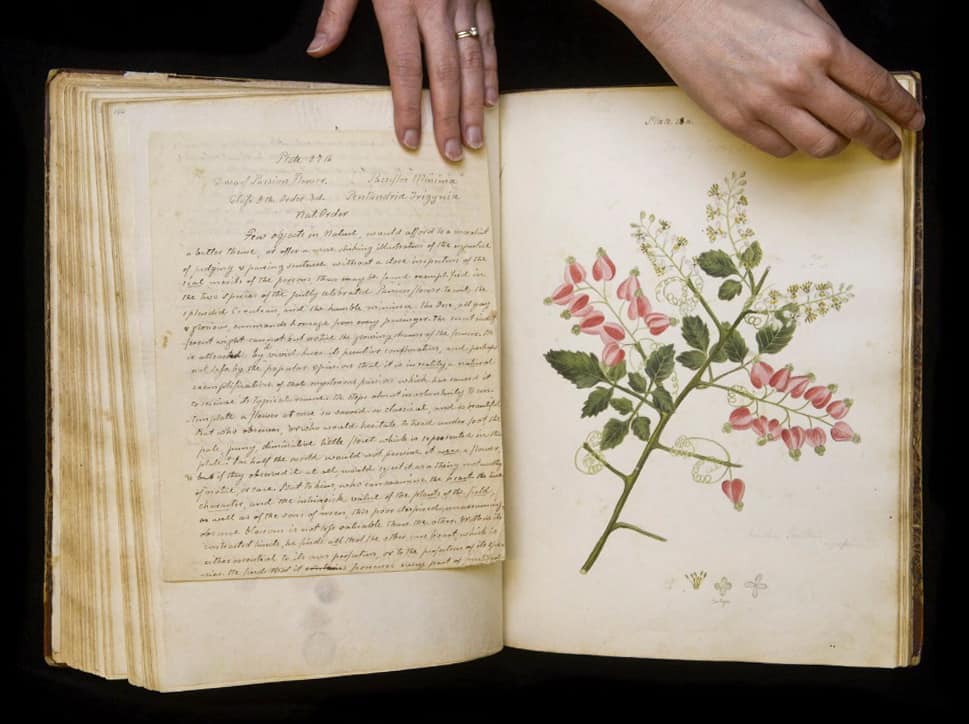 Plate 27th
Dwarf Passion Flower. Passiflora Minima
Class 5th. Order 3d. Pentandria Trigynia
Nat. Order
Few objects in Nature, would afford to a moralist
a better theme, or offer a more striking illustration of the
of judging & passing sentence without a close inspection of the
real merits of the persons than may be found exemplified in
the two species of the justly celebrated Passion flower to wit, the
splendid Cerulean, and the humble minima. The One, all gay
& glorious, commands homage from every passenger. The most indif-
ferent wight cannot but notice the glowing charms of the flower. He
is attracted by its vivid hues, its peculiar conformation, and perhaps
not less by the popular opinion that it is in reality a natural
exemplification of that mysterious passion which has caused it
to receive its typical name. He stops almost involuntarily to con-
template a flower at once so sacred, so classical, and so beautiful
But who observes, or who would hesitate to tread under foot the
pale, puny, diminutive little floret which is represented in this
plate? One half the world would not perceive it was a flower,
& if they observed it at all, would reject it as a thing not worthy
of notice, or care. But to him, who can examine the heart the
character, and the intrinsick value of the plants of the field,
as well as of the sons of men, this poor despised, unassuming
blossom is not less valuable than the other. Within its
contracted limits, he finds all that the other can boast, which is
either essential to its own perfection, or to the perfection of its spe-
cies. He finds that it possesses every part of
Plate